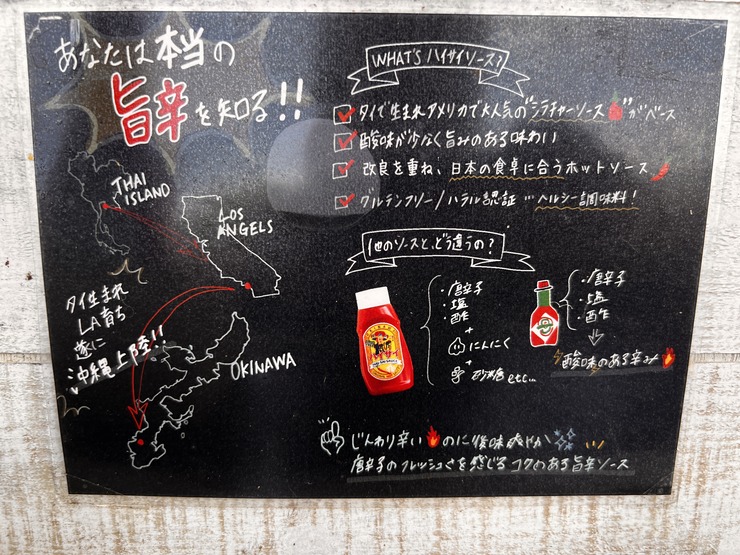 あなたは本当の
旨辛を知る!!
THAI
ISLAND
LOS
ANGELS
タイ生まれ
LA育ち
遂に
沖縄上陸!!
OKINAWA
WHAT'S ハイサイソース?
タイで生まれアメリカで大人気の"シラチャーソース"がベース
酸味が少なく旨みのある味わい
改良を重ね、日本の食卓に合うホットソース
グルテンフリー/ハラル認証…ヘルシー調味料!
他のソースと、どう違うの?
・唐辛子
・塩
・酢
+
にんにく
+
砂糖 etc...
・唐辛子
・塩
・酢
酸味のある辛み
じんわり辛いのに後味爽やか
唐辛子のフレッシュさを感じるコクのある旨辛ソース